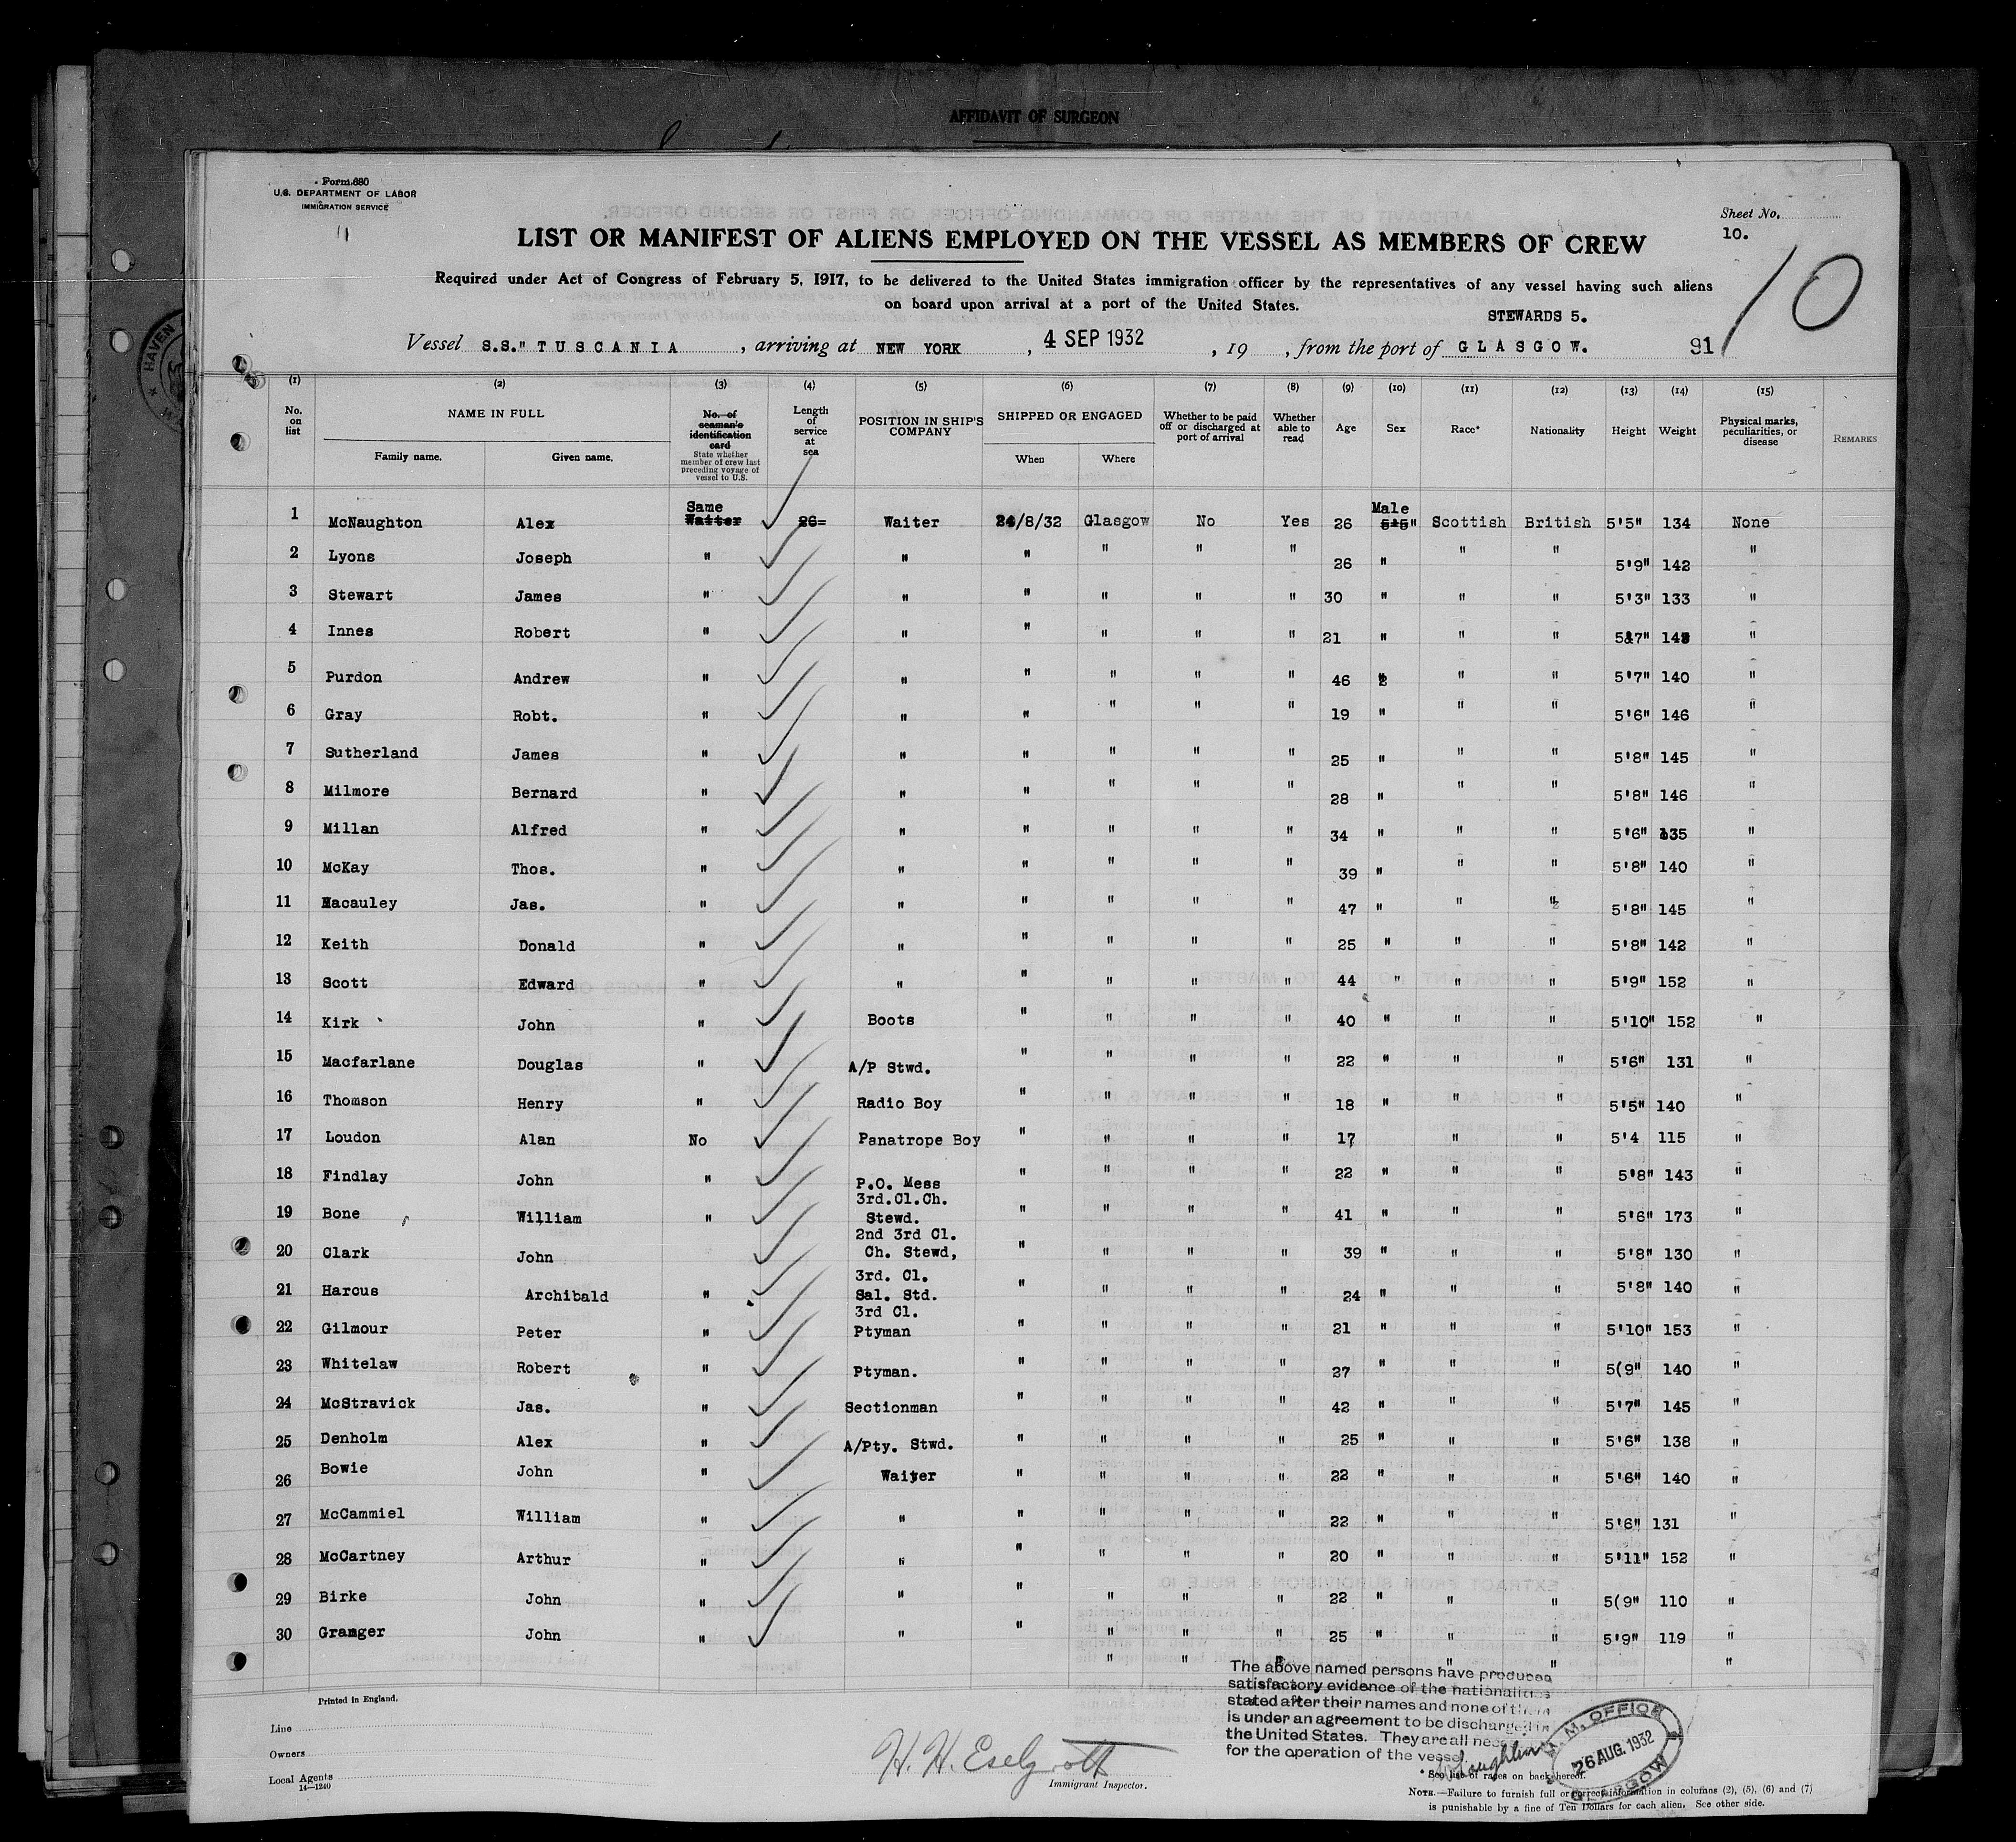 AFFIDAVIT OF SURGEON
Form 680
U.S. DEPARTMENT OF LABOR
IMMIGRATION SERVICE
11
Sheet No.
10.
10
LIST OR MANIFEST OF ALIENS EMPLOYED ON THE VESSEL AS MEMBERS OF CREW
Required under Act of Congress of February 5, 1917, to be delivered to the United States immigration officer by the representatives of any vessel having such aliens
on board upon arrival at a port of the United States.
STEWARDS 5.
Vessel S.S." TUSCANIA, arriving at NEW YORK, 4 SEP 1932, 19, from the port of GLASGOW. 91
(1) (2) (3) (4) (5) (6) (7) (8) (9) (10) (11) (12) (13) (14) (15)
No. on list NAME IN FULL Family name. Given name. No. of seaman's identification card State whether member of crew last preceding voyage of vessel to U.S. Length of service at sea POSITION IN SHIP'S COMPANY SHIPPED OR ENGAGED When Where Whether to be paid off or discharged at port of arrival Whether able to read Age Sex Race* Nationality Height Weight Physical marks, peculiarities, or disease REMARKS
1 McNaughton Alex Same Waiter 26= Waiter 24/8/32 Glasgow No Yes 26 Male 5'5" Scottish British 5'5" 134 None
2 Lyons Joseph " " " " " " 26 " " " 5'9" 142 "
3 Stewart James " " " " " " 30 " " " 5'3" 133 "
4 Innes Robert " " " " " " 21 " " " 5&7" "
5 Purdon Andrew " " " " " " 46 " " " 5'7" 140 "
6 Gray Robt. " " " " " " 19 " " " 5'6" 146 "
7 Sutherland James " " " " " " 25 " " " 5'8" 145 "
8 Milmore Bernard " " " " " " 28 " " " 5'8" 146 "
9 Millan Alfred " " " " " " 34 " " " 5'6" 135 "
10 McKay Thos. " " " " " " 39 " " " 5'8" 140 "
11 Macauley Jas. " " " " " " 47 " " " 5'8" 145 "
12 Keith Donald " " " " " " 25 " " " 5'8" 142 "
13 Scott Edward " " " " " " 44 " " " 5'9" 152 "
14 Kirk John " Boots " " " " 40 " " " 5'10" 152 "
15 Macfarlane Douglas " A/P Stwd. " " " " 22 " " " 5'6" 131 "
16 Thomson Henry " Radio Boy " " " " 18 " " " 5'5" 140 "
17 Loudon Alan No Panatrope Boy " " " " 17 " " 5'4 115 "
18 Findlay John " P.O. Mess " " " " 22 " " " 5'8" 143 "
19 Bone William " 3rd.Cl.Ch. Stewd. " " " " 41 " " " 5'6" 173 "
20 Clark John 2nd 3rd Cl. Ch. Stewd, " " " " 39 " " " 5'8" 130 "
21 Harcus Archibald " 3rd. Cl. Sal. Std. " " " " 24 " " " 5'8" 140 "
22 Gilmour Peter " 3rd Cl. Ptyman " " " " 21 " " " 5'10" 153 "
23 Whitelaw Robert " Ptyman. " " " " 27 " " " 5(9" 140 "
24 McStravick Jas. " Sectionman " " " " 42 " " " 5'7" 145 "
25 Denholm Alex " A/Pty. Stwd. " " " " 25 " " " 5'6" 138 "
26 Bowie John " Waiter " " " " 22 " " " 5'6" 140 "
27 McCammiel William " " " " " " 22 " " " 5'6" 131 "
28 McCartney Arthur " " " " " " 20 " " " 5'11" 152 "
29 Birke John " " " " " " 22 " " " 5(9" 110 "
30 Granger John " " " " " " 25 " " " 5'9" 119 "
" " " " " "
The above named persons have produced
satisfactory evidence of the nationalities
stated after their names and none of them
is under an agreement to be discharged in
the United States. They are all necessary
for the operation of the vessel.
Printed in England.
Line
Owners
Local Agents
14—1240
Immigrant Inspector.
M. OFFICE
26 AUG. 1932
GLASGOW
* See list of races on back hereof.
NOTE.—Failure to furnish full or correct information in columns (2), (5), (6) and (7)
is punishable by a fine of Ten Dollars for each alien. See other side.